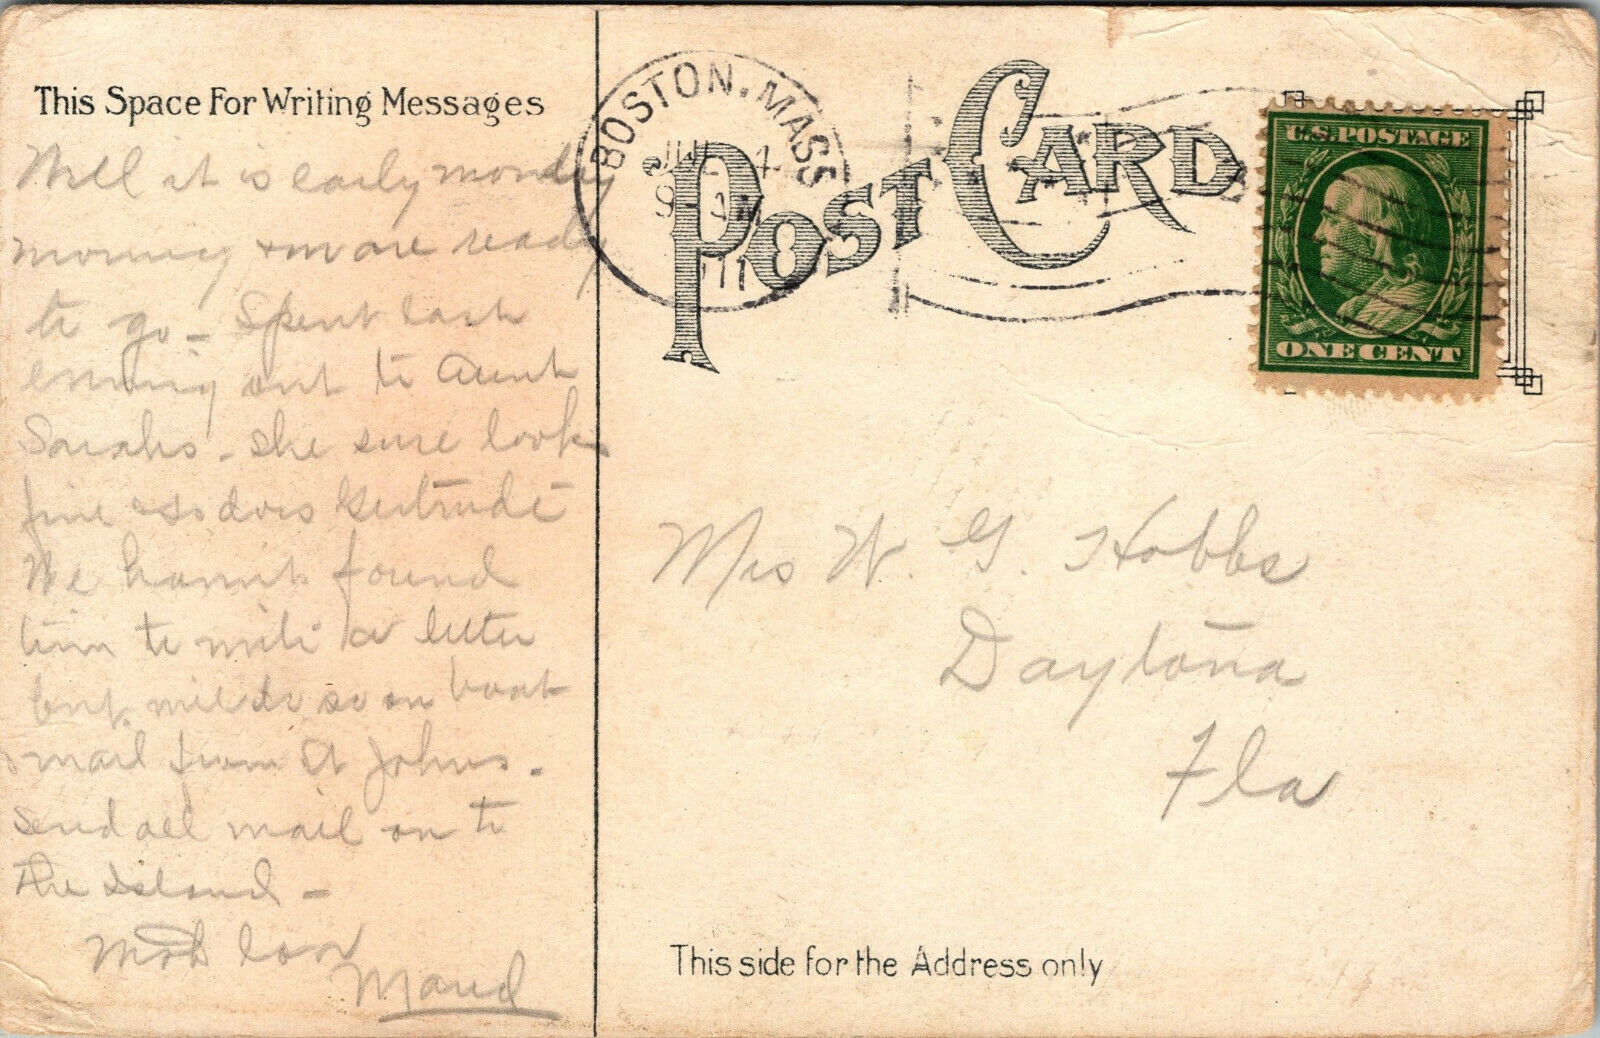 This Space For Writing Messages
Well it is early monday
morning & we are ready
to go - Spent last
evening out to Aunt
Sarahs - she sure looks
fine & so does Gertrude
We haven't found
time to write a letter
but will do so on boat
& mail from St Johns.
Send all mail on to
The Island -
Much love
Maud
BOSTON, MASS
JUL 4
9 - AM
1911
POST CARD
U.S. POSTAGE
ONE CENT
Mrs W. G. Hobbs
Daytona
Fla
This side for the Address only